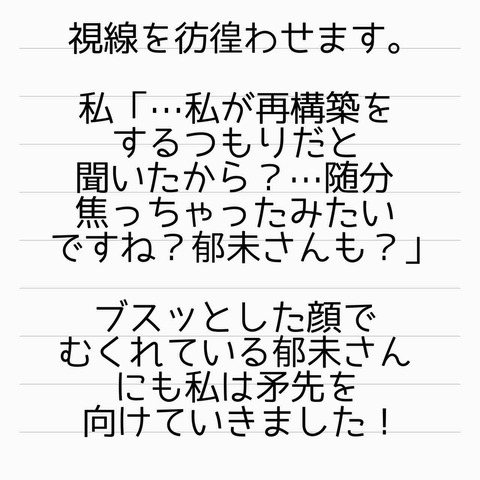 視線を彷徨わせます。
私「…私が再構築を
するつもりだと
聞いたから？…随分
焦っちゃったみたい
ですね？郁未さんも？」
ブスッとした顔で
むくれている郁未さん
にも私は矛先を
向けていきました！